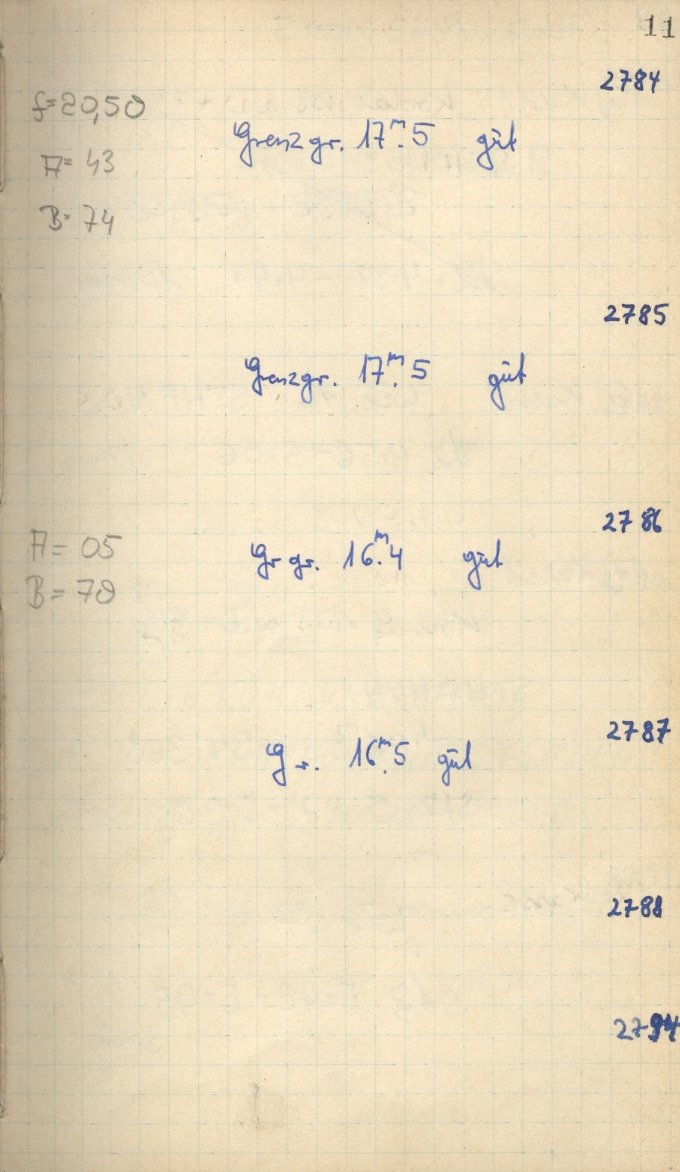 11
2784
f=20,50
Grenzgr. 17ᵐ.5 gut
A= 43
B= 74
2785
Grenzgr. 17ᵐ.5 gut
2786
A= 05
Gr gr. 16ᵐ.4 gut
B= 70
2787
Gr. 16ᵐ.5 gut
2788
2794